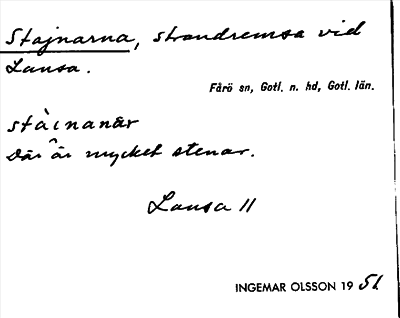 Stajnarna, strandremsa vid
Lansa.
Fårö sn, Gotl. n. hd, Gotl. län.
stàinanär
Där är mycket stenar.
Lansa 11
INGEMAR OLSSON 19 51